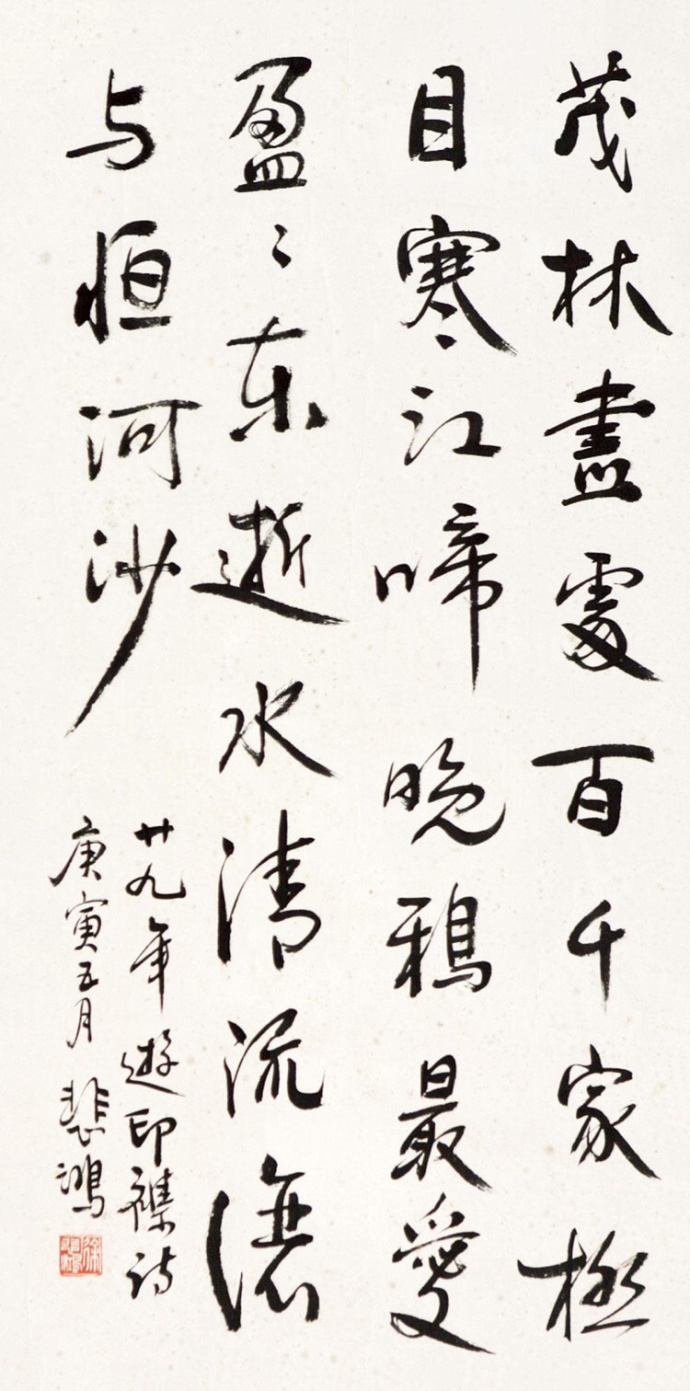 茂林盡處百千家極
目寒江啼晚鴉最愛
盈〻東逝水清流
与恒河沙
廿九年遊印襍诗
庚寅五月悲鴻